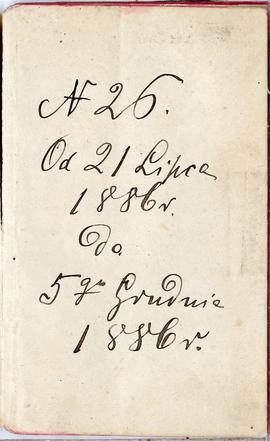 N 26.
Od 21 Lipca
1886r.
Do
5go Grudnia
1886r.